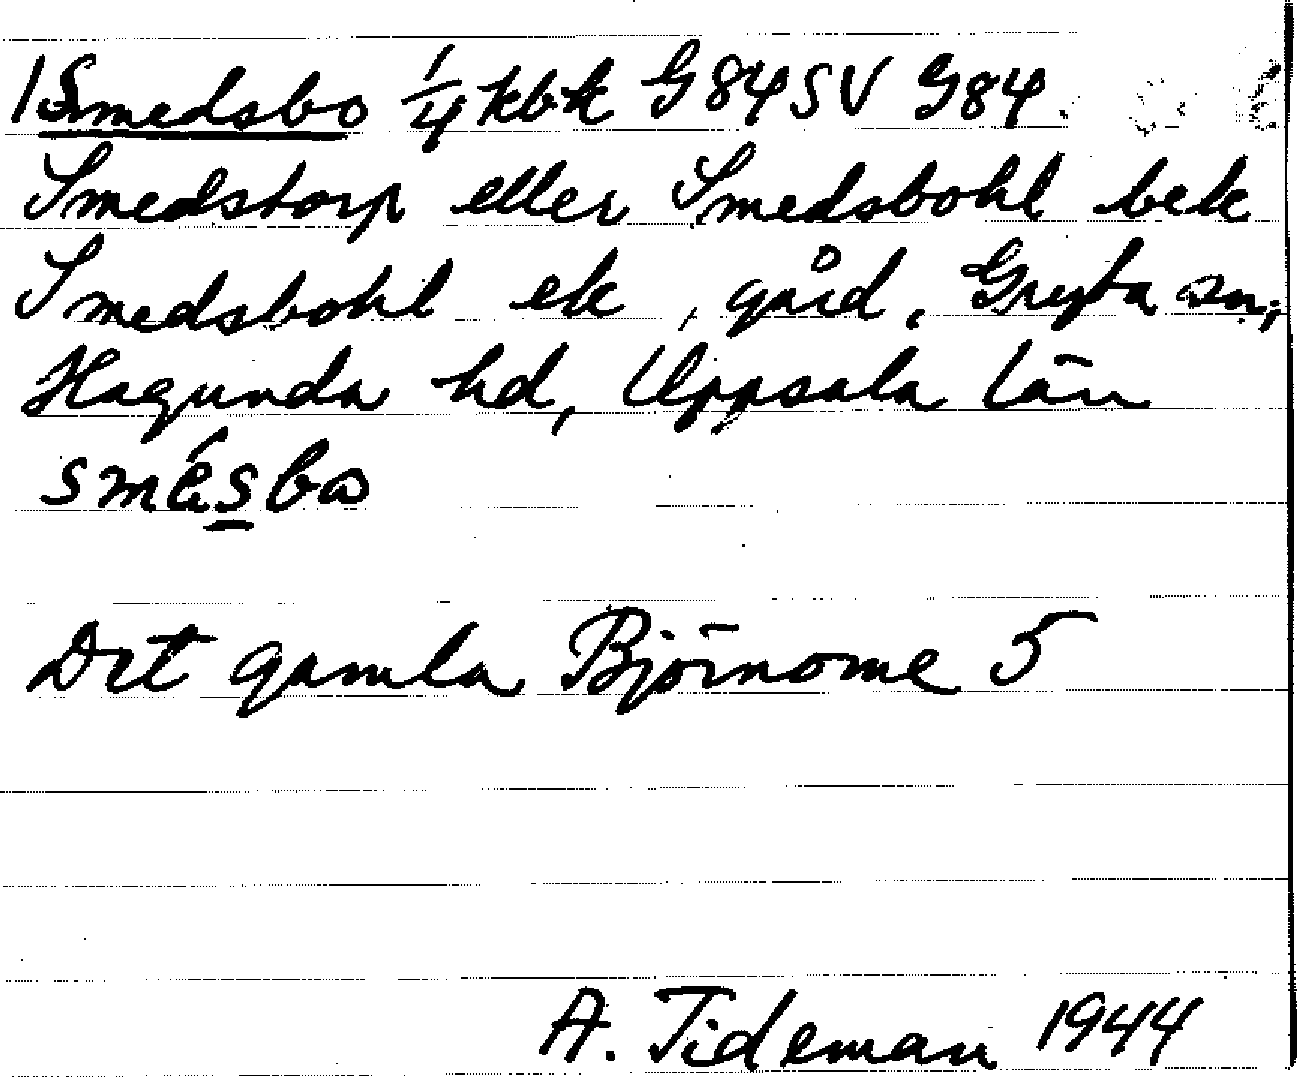 1 Smedsbo 1/4 kbk G84SV G84
Smedstorp eller Smedsbohl bek
Smedsbohl ek, gård, Gryta sn,
Hagunda hd, Uppsala län
smésbo
Det gamla Björnome 5
A. Tideman 1944